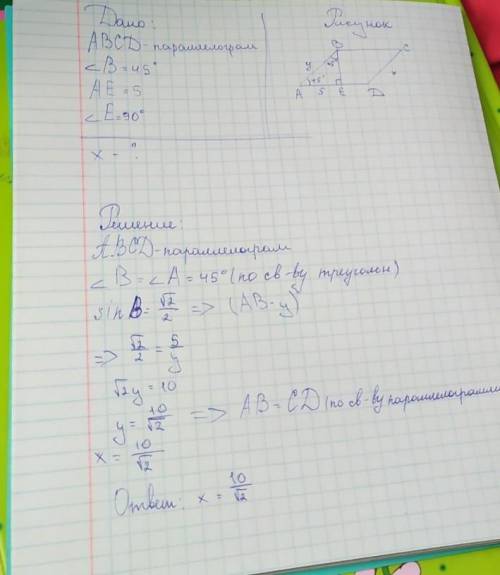 Дано:
ABCD-параллелограм
∠B=45°
AE=5
∠E=90°
x - ?
Рисунок
B
C
y
45°
45°
A
5
E
D
Решение:
ABCD-параллелограм
∠B=∠A=45° (по св-ву треуголон)
sin B = √2/2 => (AB-y)
=> √2/2 = 5/y
√2y=10
y= 10/√2 => AB=CD (по св-ву параллелограмма
x= 10/√2
Ответ: x = 10/√2